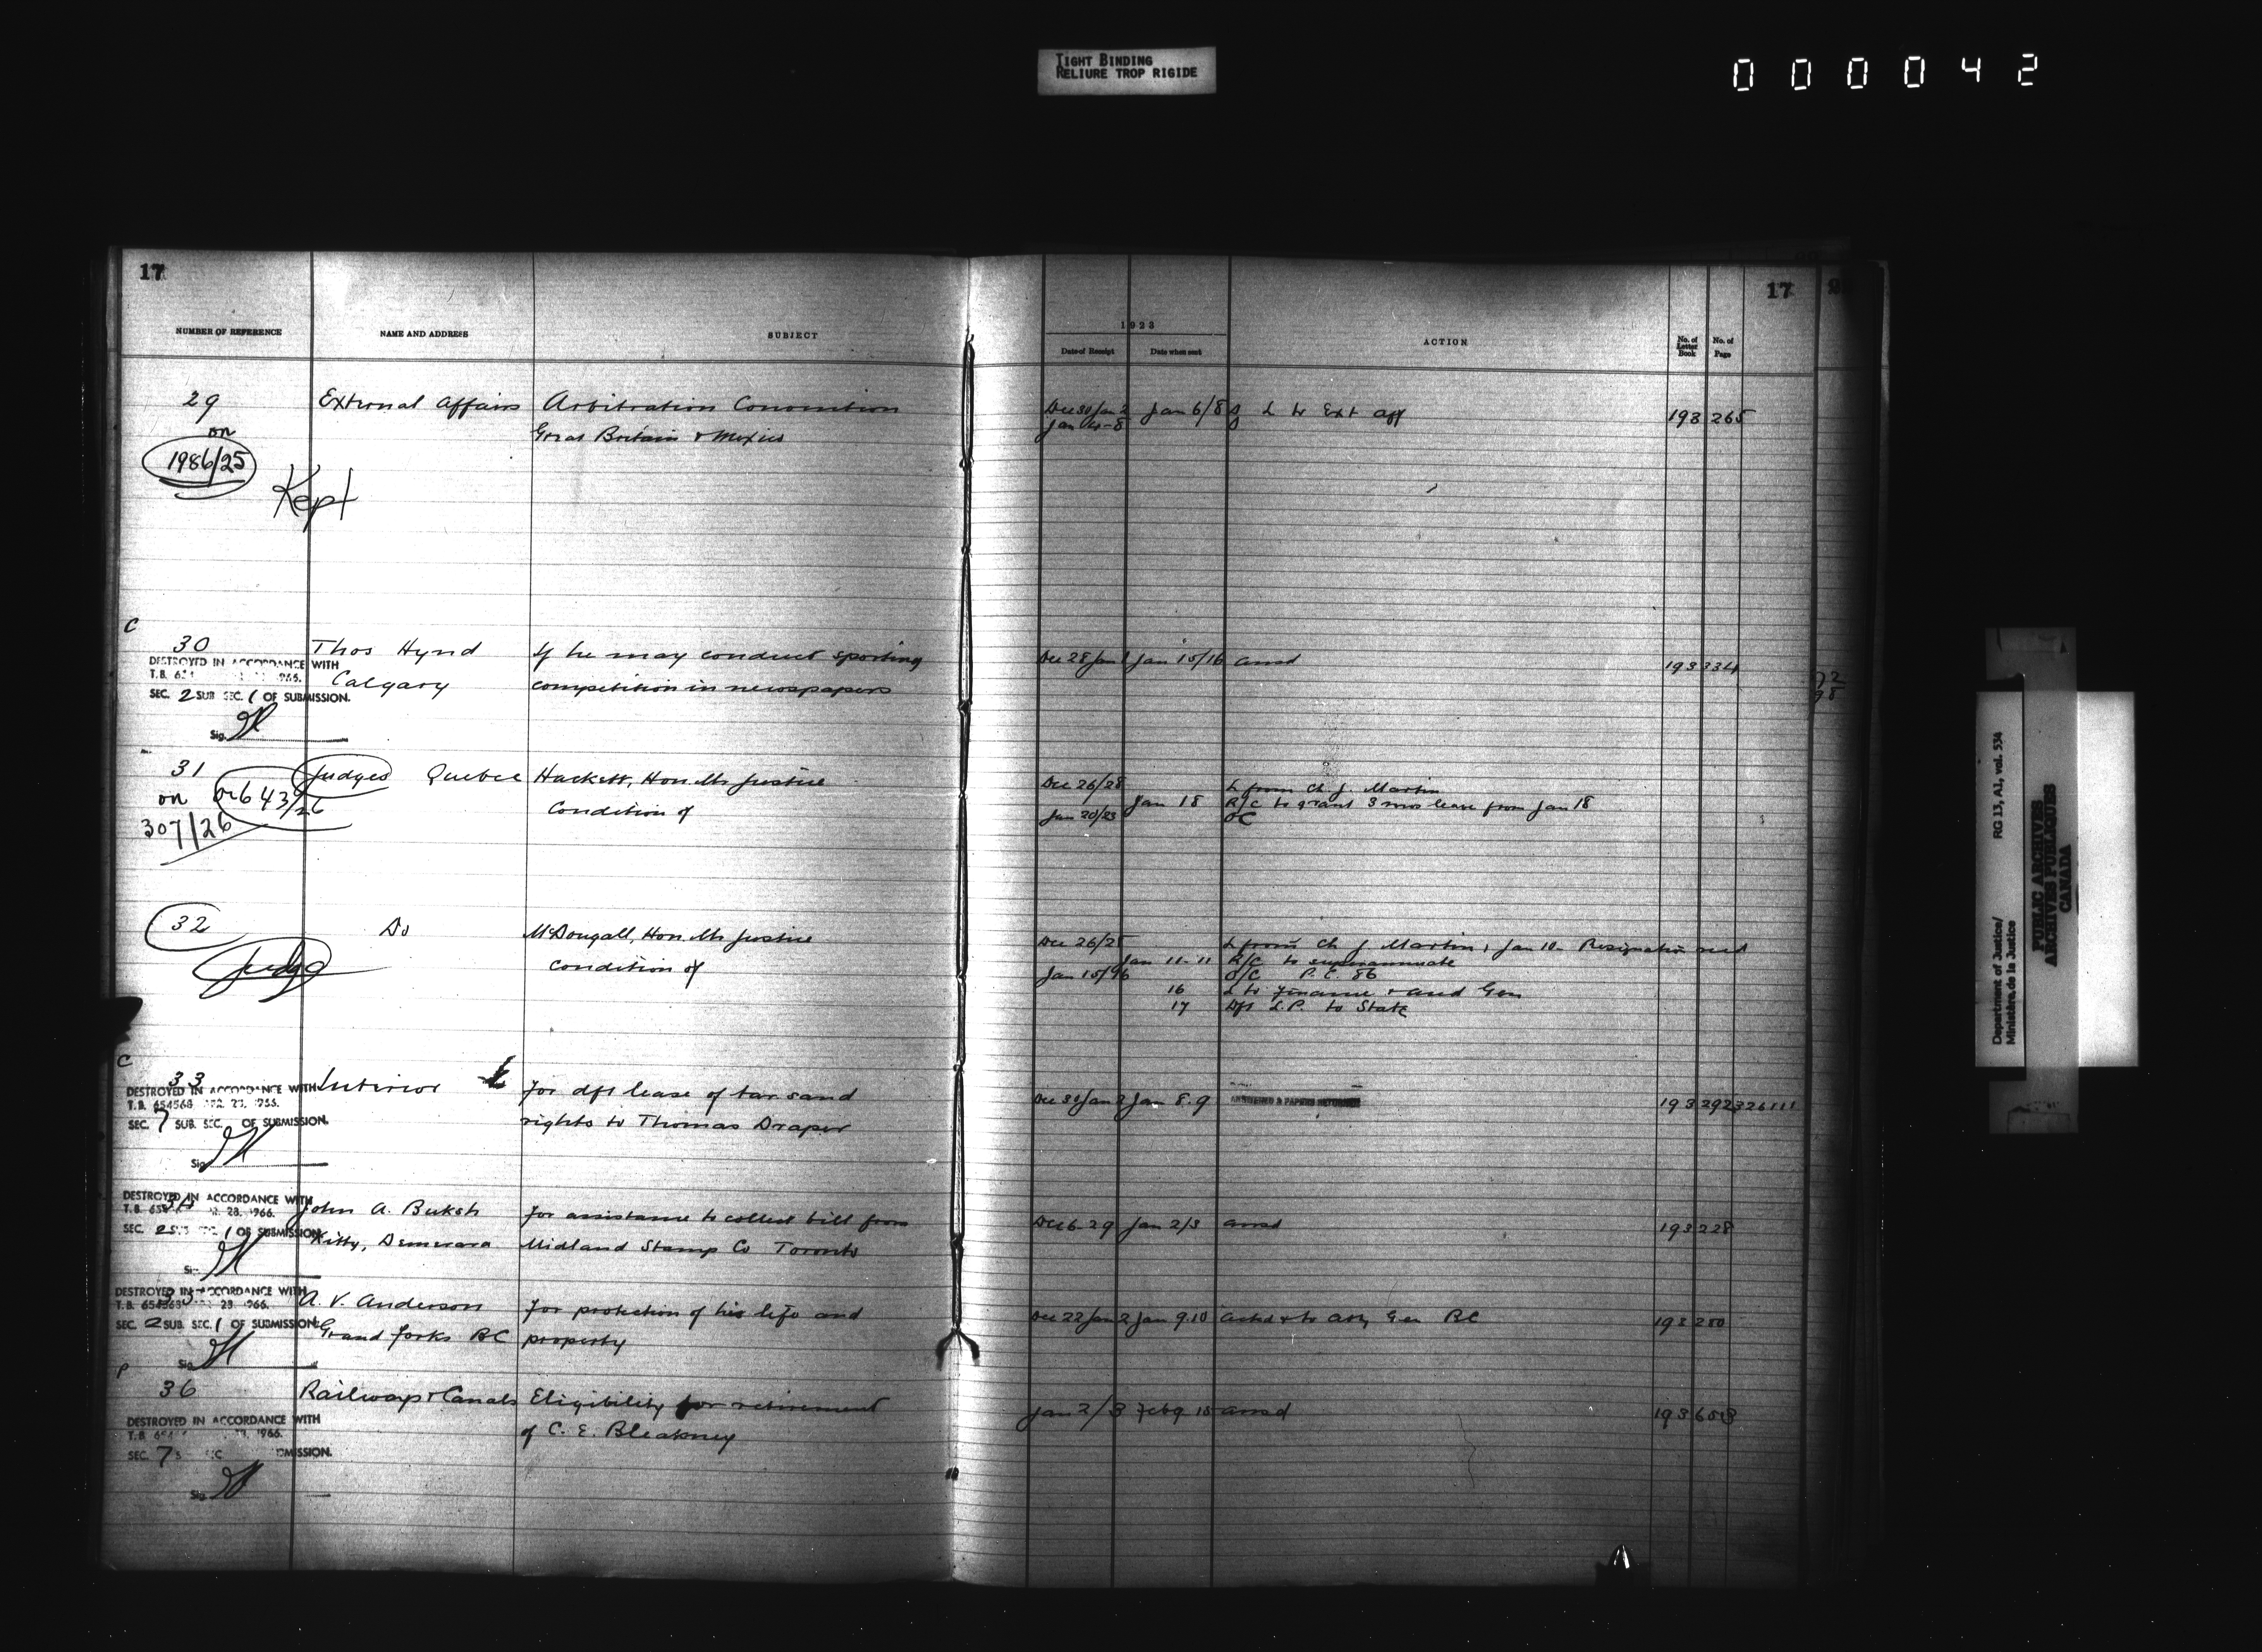 TIGHT BINDING
RELIURE TROP RIGIDE
000042
17
NUMBER OF REFERENCE
NAME AND ADDRESS
SUBJECT
29
External Affairs
Arbitration Convention
on
Great Britain & Mexico
1986/25
Kept
C
30
Thos Hynd
If he may conduct sporting
DESTROYED IN ACCORDANCE WITH
T.B. 1966.
Calgary
competition in newspapers
SEC. 2 SUB SEC. 1 OF SUBMISSION.
Sig.
31
Judges Quebec
Hackett, Hon. Mr Justice
on 643/26
Condition of
307/26
32
Do
McDougall, Hon. Mr Justice
Judge
Condition of
C
33
Interior
For dft lease of tar sand
DESTROYED IN ACCORDANCE WITH
T.B. 654568 1966.
rights to Thomas Draper
SEC. 7 SUB. SEC. OF SUBMISSION.
Sig.
DESTROYED IN ACCORDANCE WITH
34
John A. Buksh
For assistance to collect bill from
T.B. 28, 1966.
SEC. 2 SUB SEC. 1 OF SUBMISSION.
Kitty, Demerara
Midland Stamp Co Toronto
Sig.
DESTROYED IN ACCORDANCE WITH
35
A. V. Anderson
For protection of his life and
T.B. 654568 28 1966.
SEC. 2 SUB SEC. 1 OF SUBMISSION.
Grand Forks BC
property
Sig.
P
36
Railways & Canals
Eligibility for retirement
DESTROYED IN ACCORDANCE WITH
T.B. 1966.
of C. E. Bleakney
SEC. 7
Sig.
17
1923
Date of Receipt
Date when sent
ACTION
No. of Letter Book
No. of Page
Dec 30 Jan 2
Jan 6/8
L to Ext Aff
193
265
Dec 28 Jan
Jan 15/16
ansd
193
334
Dec 26/28
L from Ch J. Martin
Jan 18
R/C to grant 3 mos leave from Jan 18
Jan 20/23
OC
Dec 26/28
L from Ch J Martin, Jan 10 - Resignation
Jan 11-11
R/C to superannuate
Jan 15/96
O/C P.C. 86
16
L to Finance & Aud Gen
17
Dft L.P. to State
Dec 30 Jan 2
Jan 8.9
ANSWERED & PAPERS RETURNED
193
292
Dec 6-29
Jan 2/3
ansd
193
228
Dec 22 Jan 2
Jan 9.10
& to Atty Gen BC
193
280
Jan 2/3
Feb 9 15
ansd
193
Department of Justice/
Ministère de la Justice
RG 13, A1, vol. 534
PUBLIC ARCHIVES
ARCHIVES PUBLIQUES
CANADA